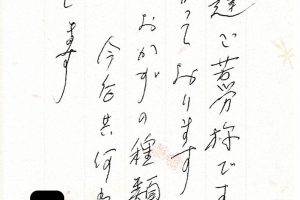 達ご苦労様です
かっております
おかずの種類
今后共何
します